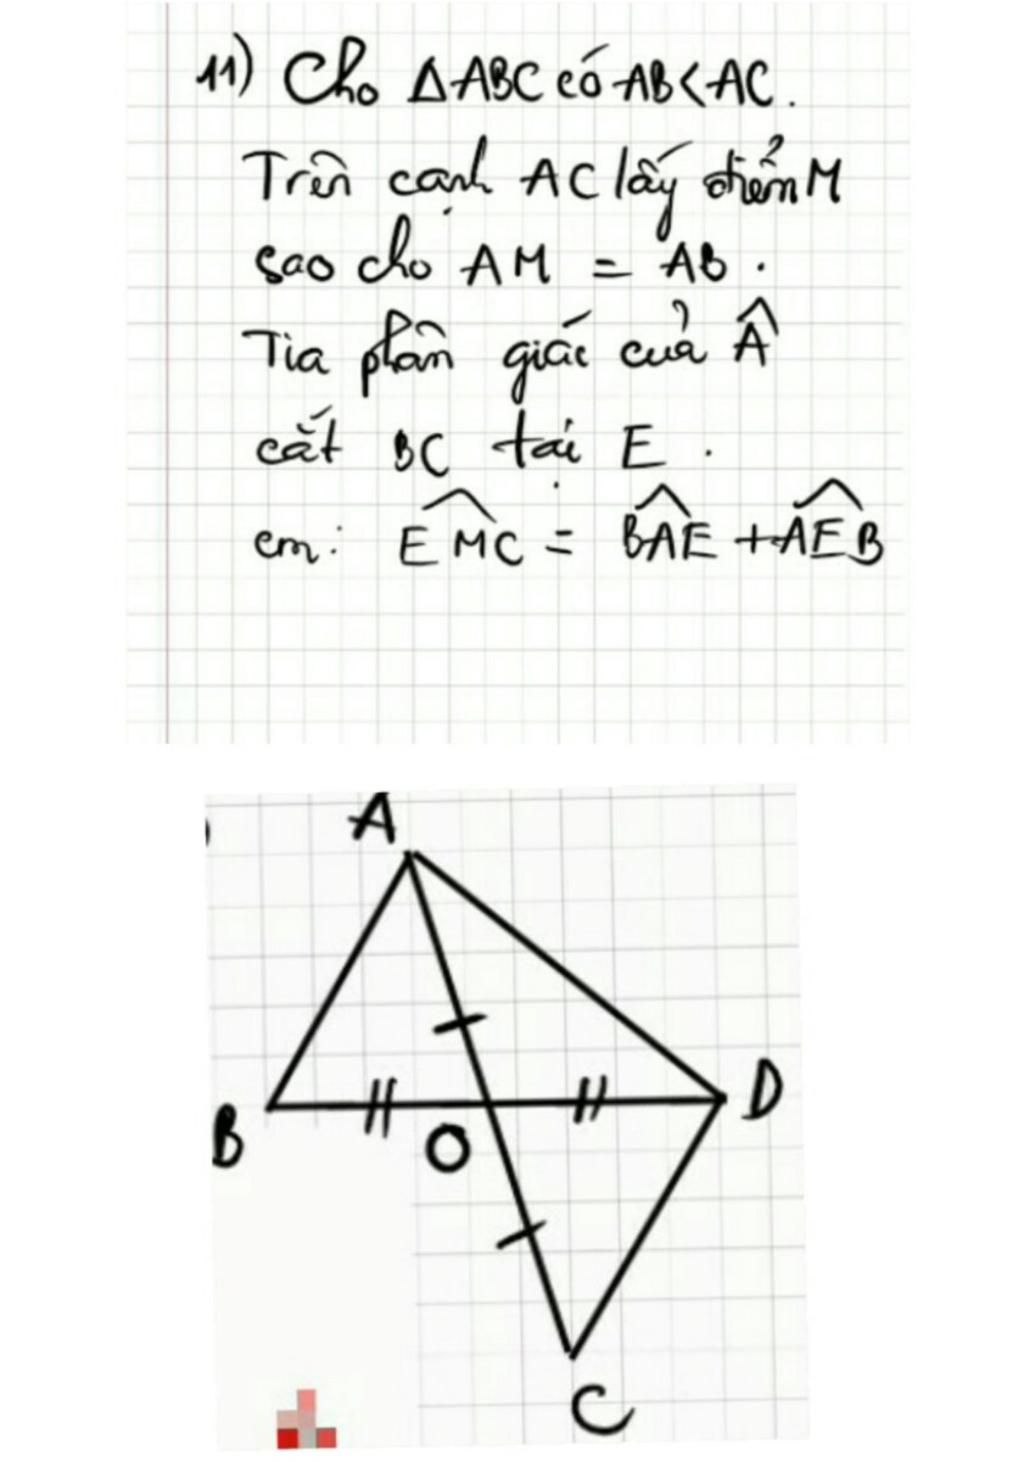 11) Cho ΔABC có AB<AC.
Trên cạnh AC lấy điểm M
sao cho AM = AB.
Tia phân giác của Â
cắt BC tại E.
cm: \widehat{EMC} = \widehat{BAE} + \widehat{AEB}
A
B
O
D
C